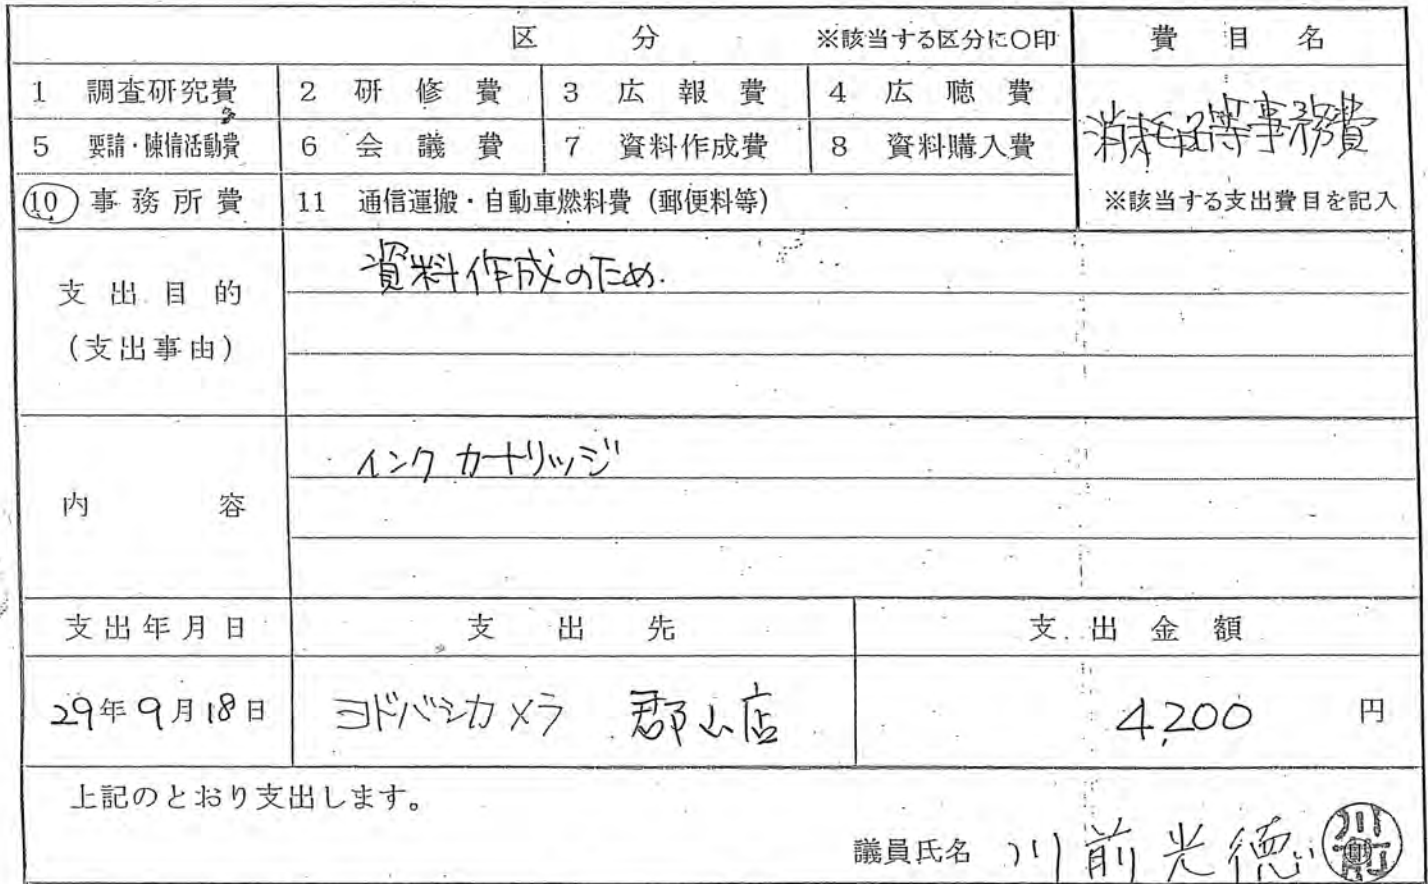 区 分 ※該当する区分に○印 費 目 名
1 調査研究費 2 研 修 費 3 広 報 費 4 広 聴 費
消耗品等事務費
5 要請・陳情活動費 6 会 議 費 7 資料作成費 8 資料購入費
10 事 務 所 費 11 通信運搬・自動車燃料費（郵便料等） ※該当する支出費目を記入
支 出 目 的
（支出事由）
資料作成のため.
内 容
インクカートリッジ
支出年月日 支 出 先 支 出 金 額
29年9月18日 ヨドバシカメラ 郡山店 4,200 円
上記のとおり支出します。
議員氏名 川前光徳
川前